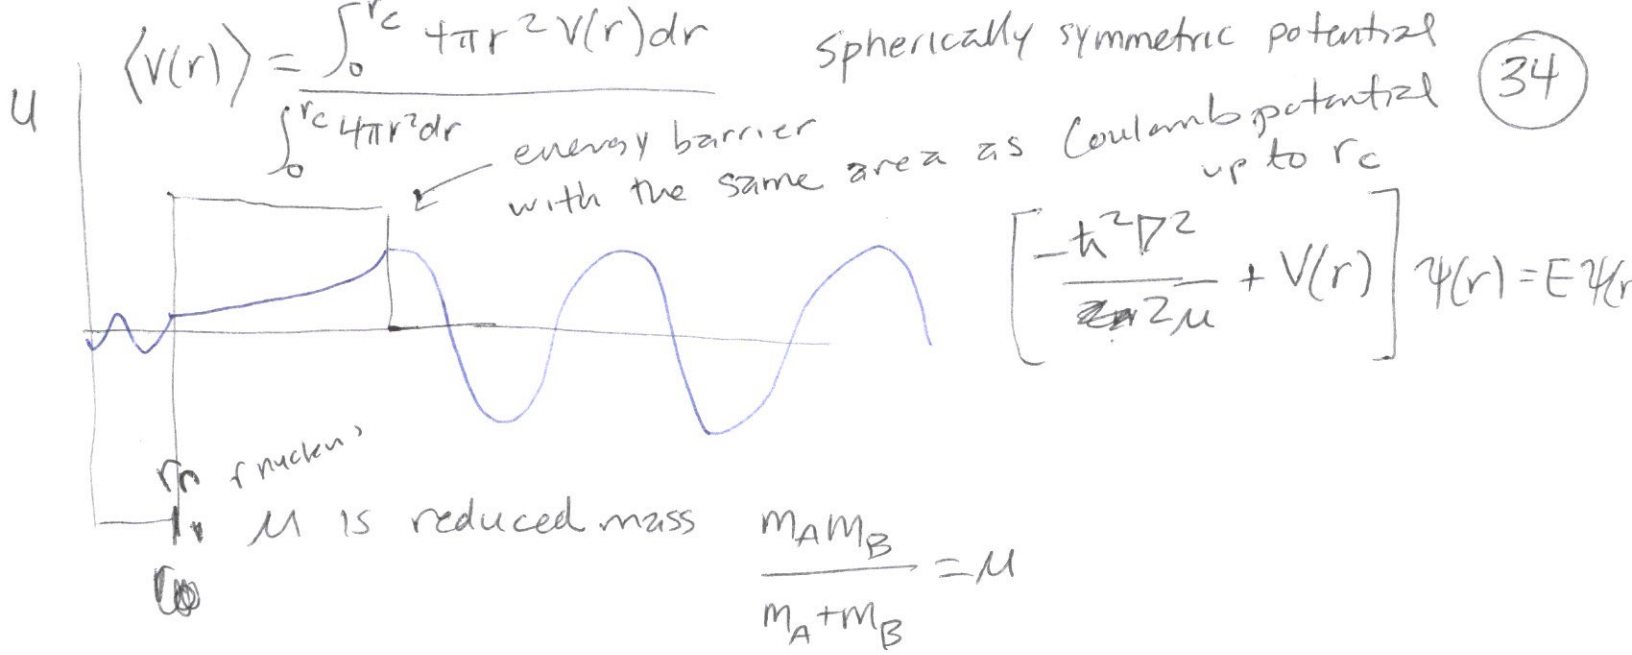 ⟨V(r)⟩ = ∫₀^{r_c} 4πr² V(r)dr / ∫₀^{r_c} 4πr²dr
Spherically symmetric potential
34
U
energy barrier
with the same area as Coulomb potential
up to r_c
[-ħ²∇² / 2μ + V(r)] ψ(r) = E ψ(r
r_n
μ is reduced mass
m_A m_B / m_A + m_B = μ